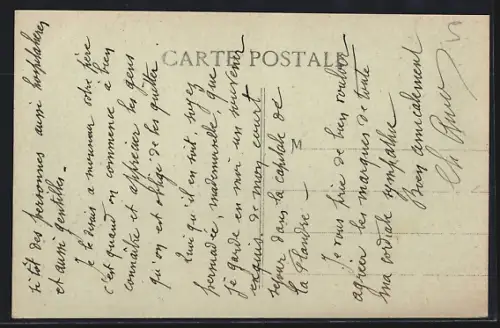 CARTE POSTALE
si tôt des personnes aussi hospitalières
et aussi gentilles.
Je le disais a monsieur votre frère
c'est quand on commence à bien
connaître et apprécier les gens
qu'on est obligé de les quitter.
Quoi qu'il en soit soyez
persuadée, mademoiselle, que
je garde en moi un souvenir
exquis de mon court
séjour dans la capitale de
la Flandre —
Je vous prie de bien vouloir
agréer les marques de toute
ma cordiale sympathie
Bien amicalement
Ch